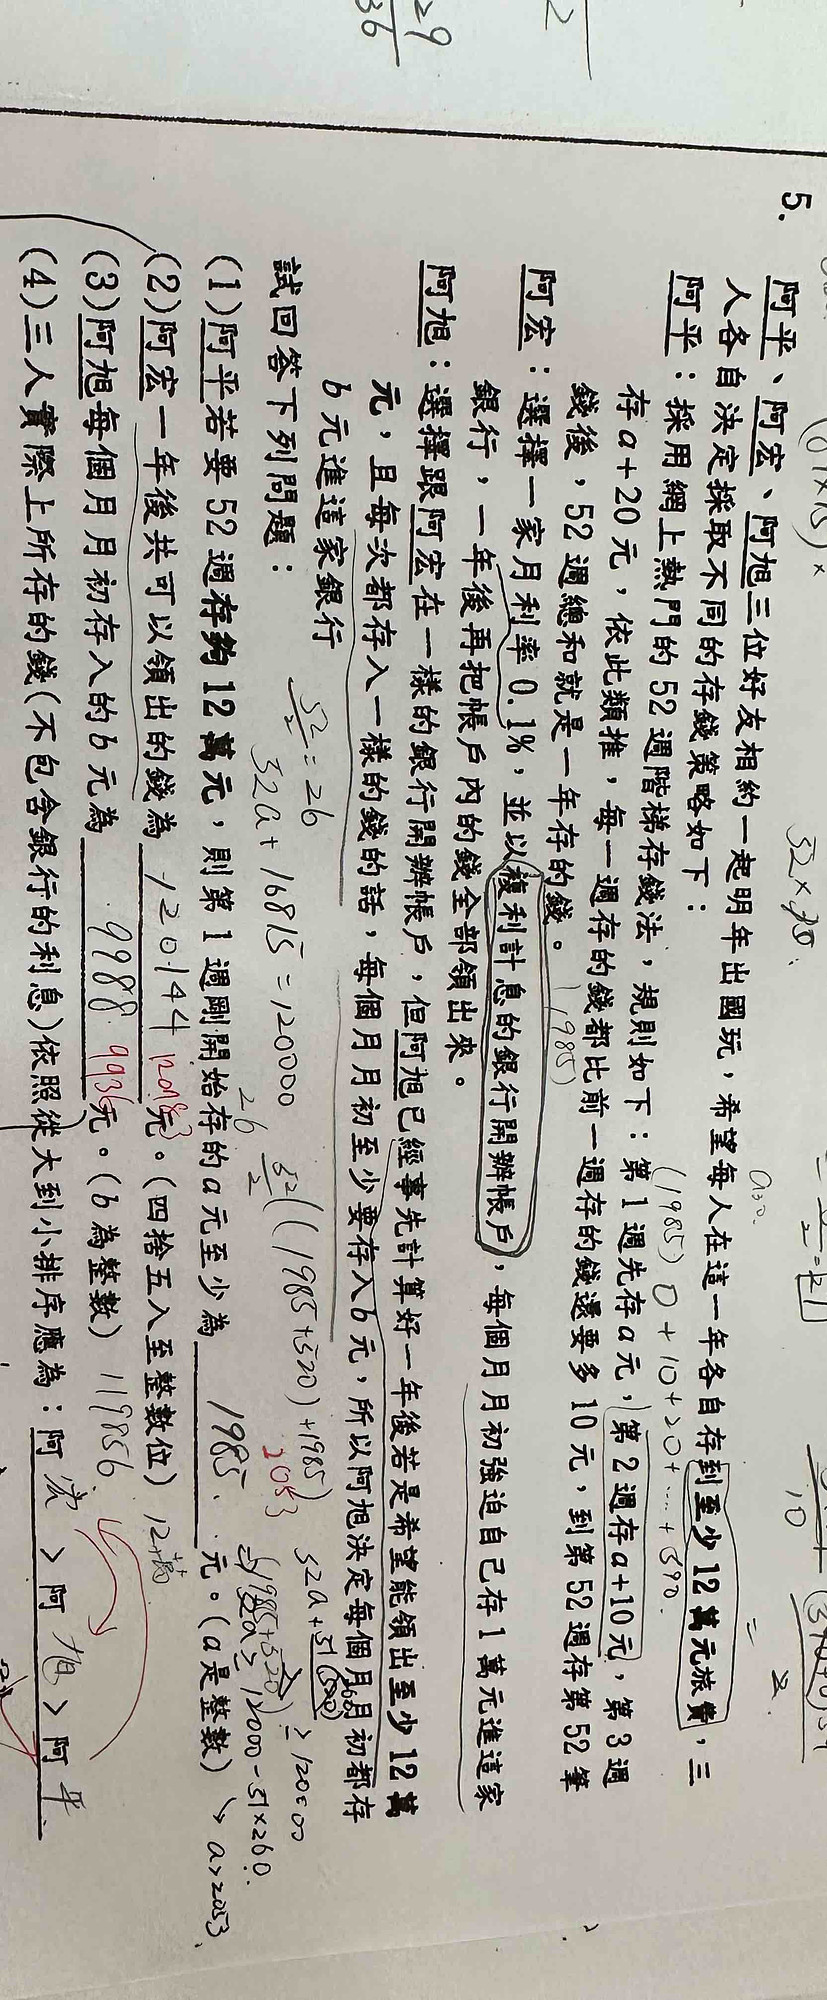 29
36
2
5. 阿平、阿宏、阿旭三位好友相約一起明年出國玩，希望每人在這一年各自存到至少12萬元旅費，三
人各自決定採取不同的存錢策略如下：
阿平：採用網上熱門的52週階梯存錢法，規則如下：第1週先存a元，第2週存a+10元，第3週
存a+20元，依此類推，每一週存的錢都比前一週存的錢還要多10元，到第52週存第52筆
錢後，52週總和就是一年存的錢。
(1985)
(1985) 0+10+20+...+590.
阿宏：選擇一家月利率0.1%，並以複利計息的銀行開辦帳戶，每個月月初強迫自己存1萬元進這家
銀行，一年後再把帳戶內的錢全部領出來。
阿旭：選擇跟阿宏在一樣的銀行開辦帳戶，但阿旭已經事先計算好一年後若是希望能領出至少12萬
元，且每次都存入一樣的錢的話，每個月月初至少要存入b元，所以阿旭決定每個月月初都存
b元進這家銀行
試回答下列問題：
52/2=26
52a+16815=120000
26
52/2((1985+520)+1985)
2053
52a+51(520)
≥120000
a>2053
(1)阿平若要52週存夠12萬元，則第1週剛開始存的a元至少為 1985. 元。(a是整數)
(2)阿宏一年後共可以領出的錢為 120144 元。(四捨五入至整數位)
(3)阿旭每個月月初存入的b元為 9988. 9936 元。(b為整數) 119856
(4)三人實際上所存的錢(不包含銀行的利息)依照從大到小排序應為：阿宏＞阿旭＞阿平